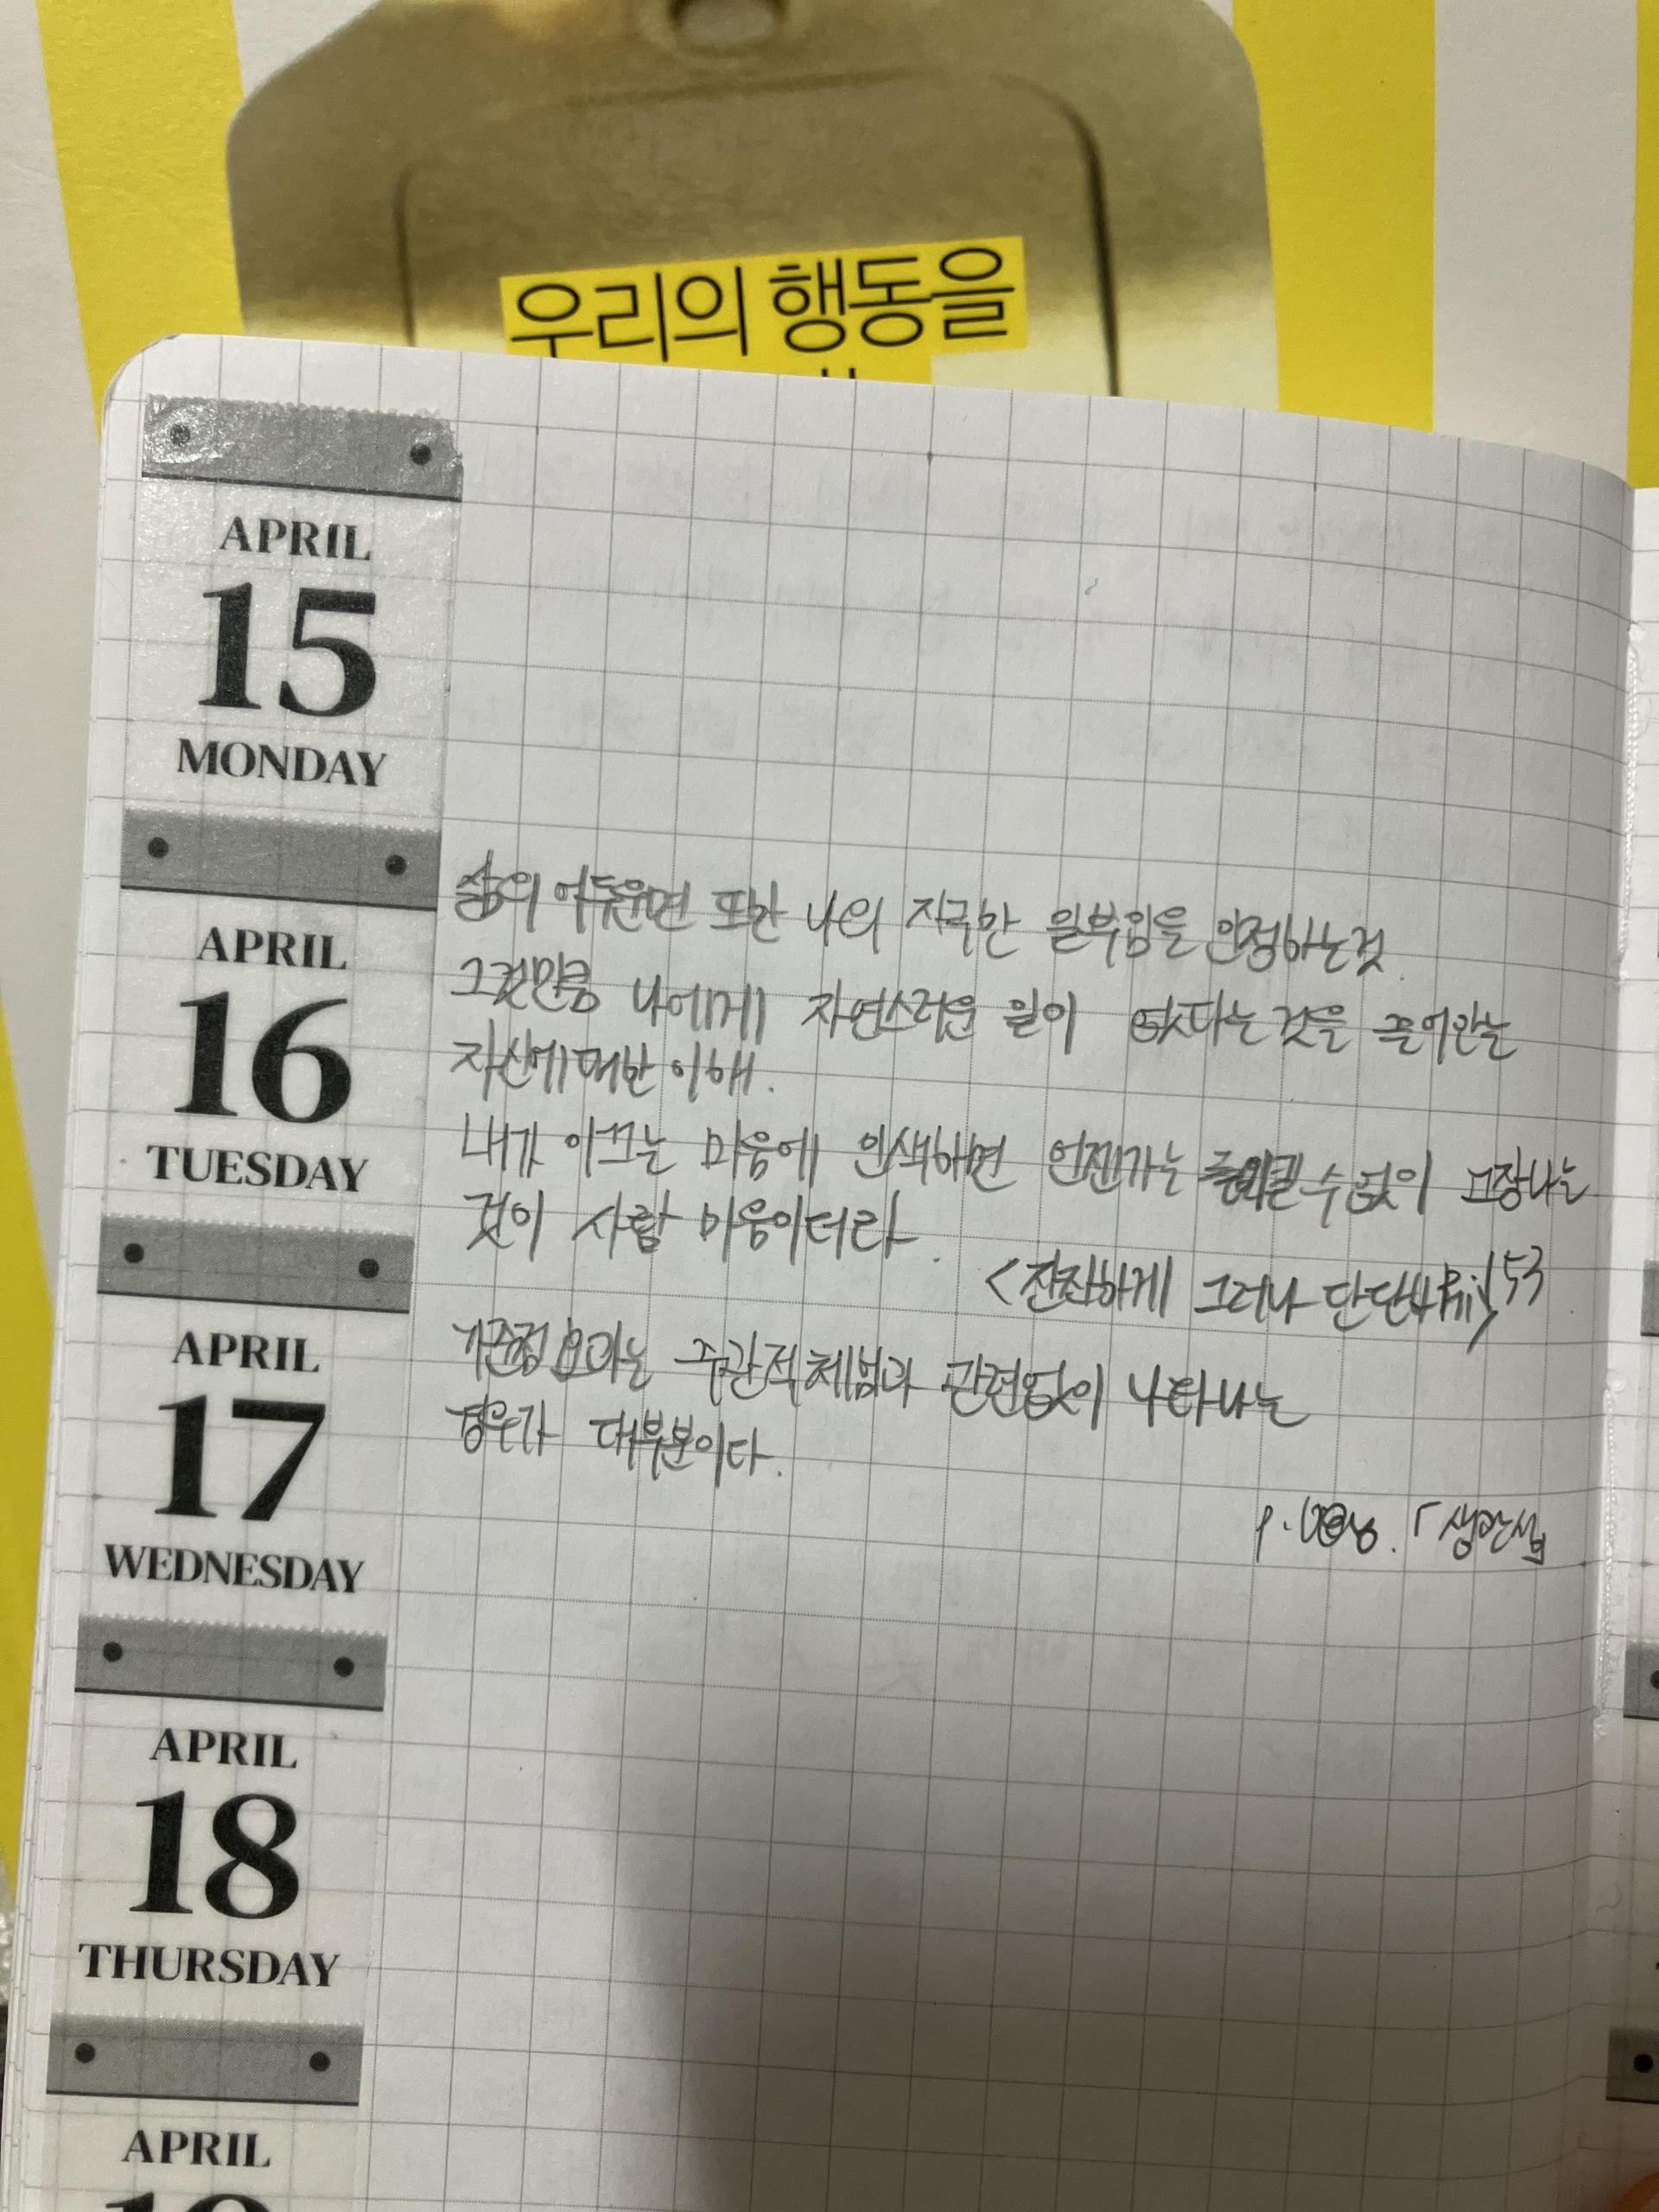 우리의 행동을
APRIL
15
MONDAY
APRIL
16
TUESDAY
삶의 어두운면 또한 나의 지극한 일부임을 인정하는것
그것만큼 나에게 자연스러운 일이 없다는 것을 끌어안는
자신에대한 이해.
내가 이끄는 마음에 인색해면 언젠가는 수 없이 고장나는
것이 사람 마음이더라.
<잔잔하게 그러나 단단하게> 53
APRIL
17
WEDNESDAY
기준점효과는 주관적체범과 관련없이 나타나는
경우가 대부분이다.
APRIL
18
THURSDAY
APRIL